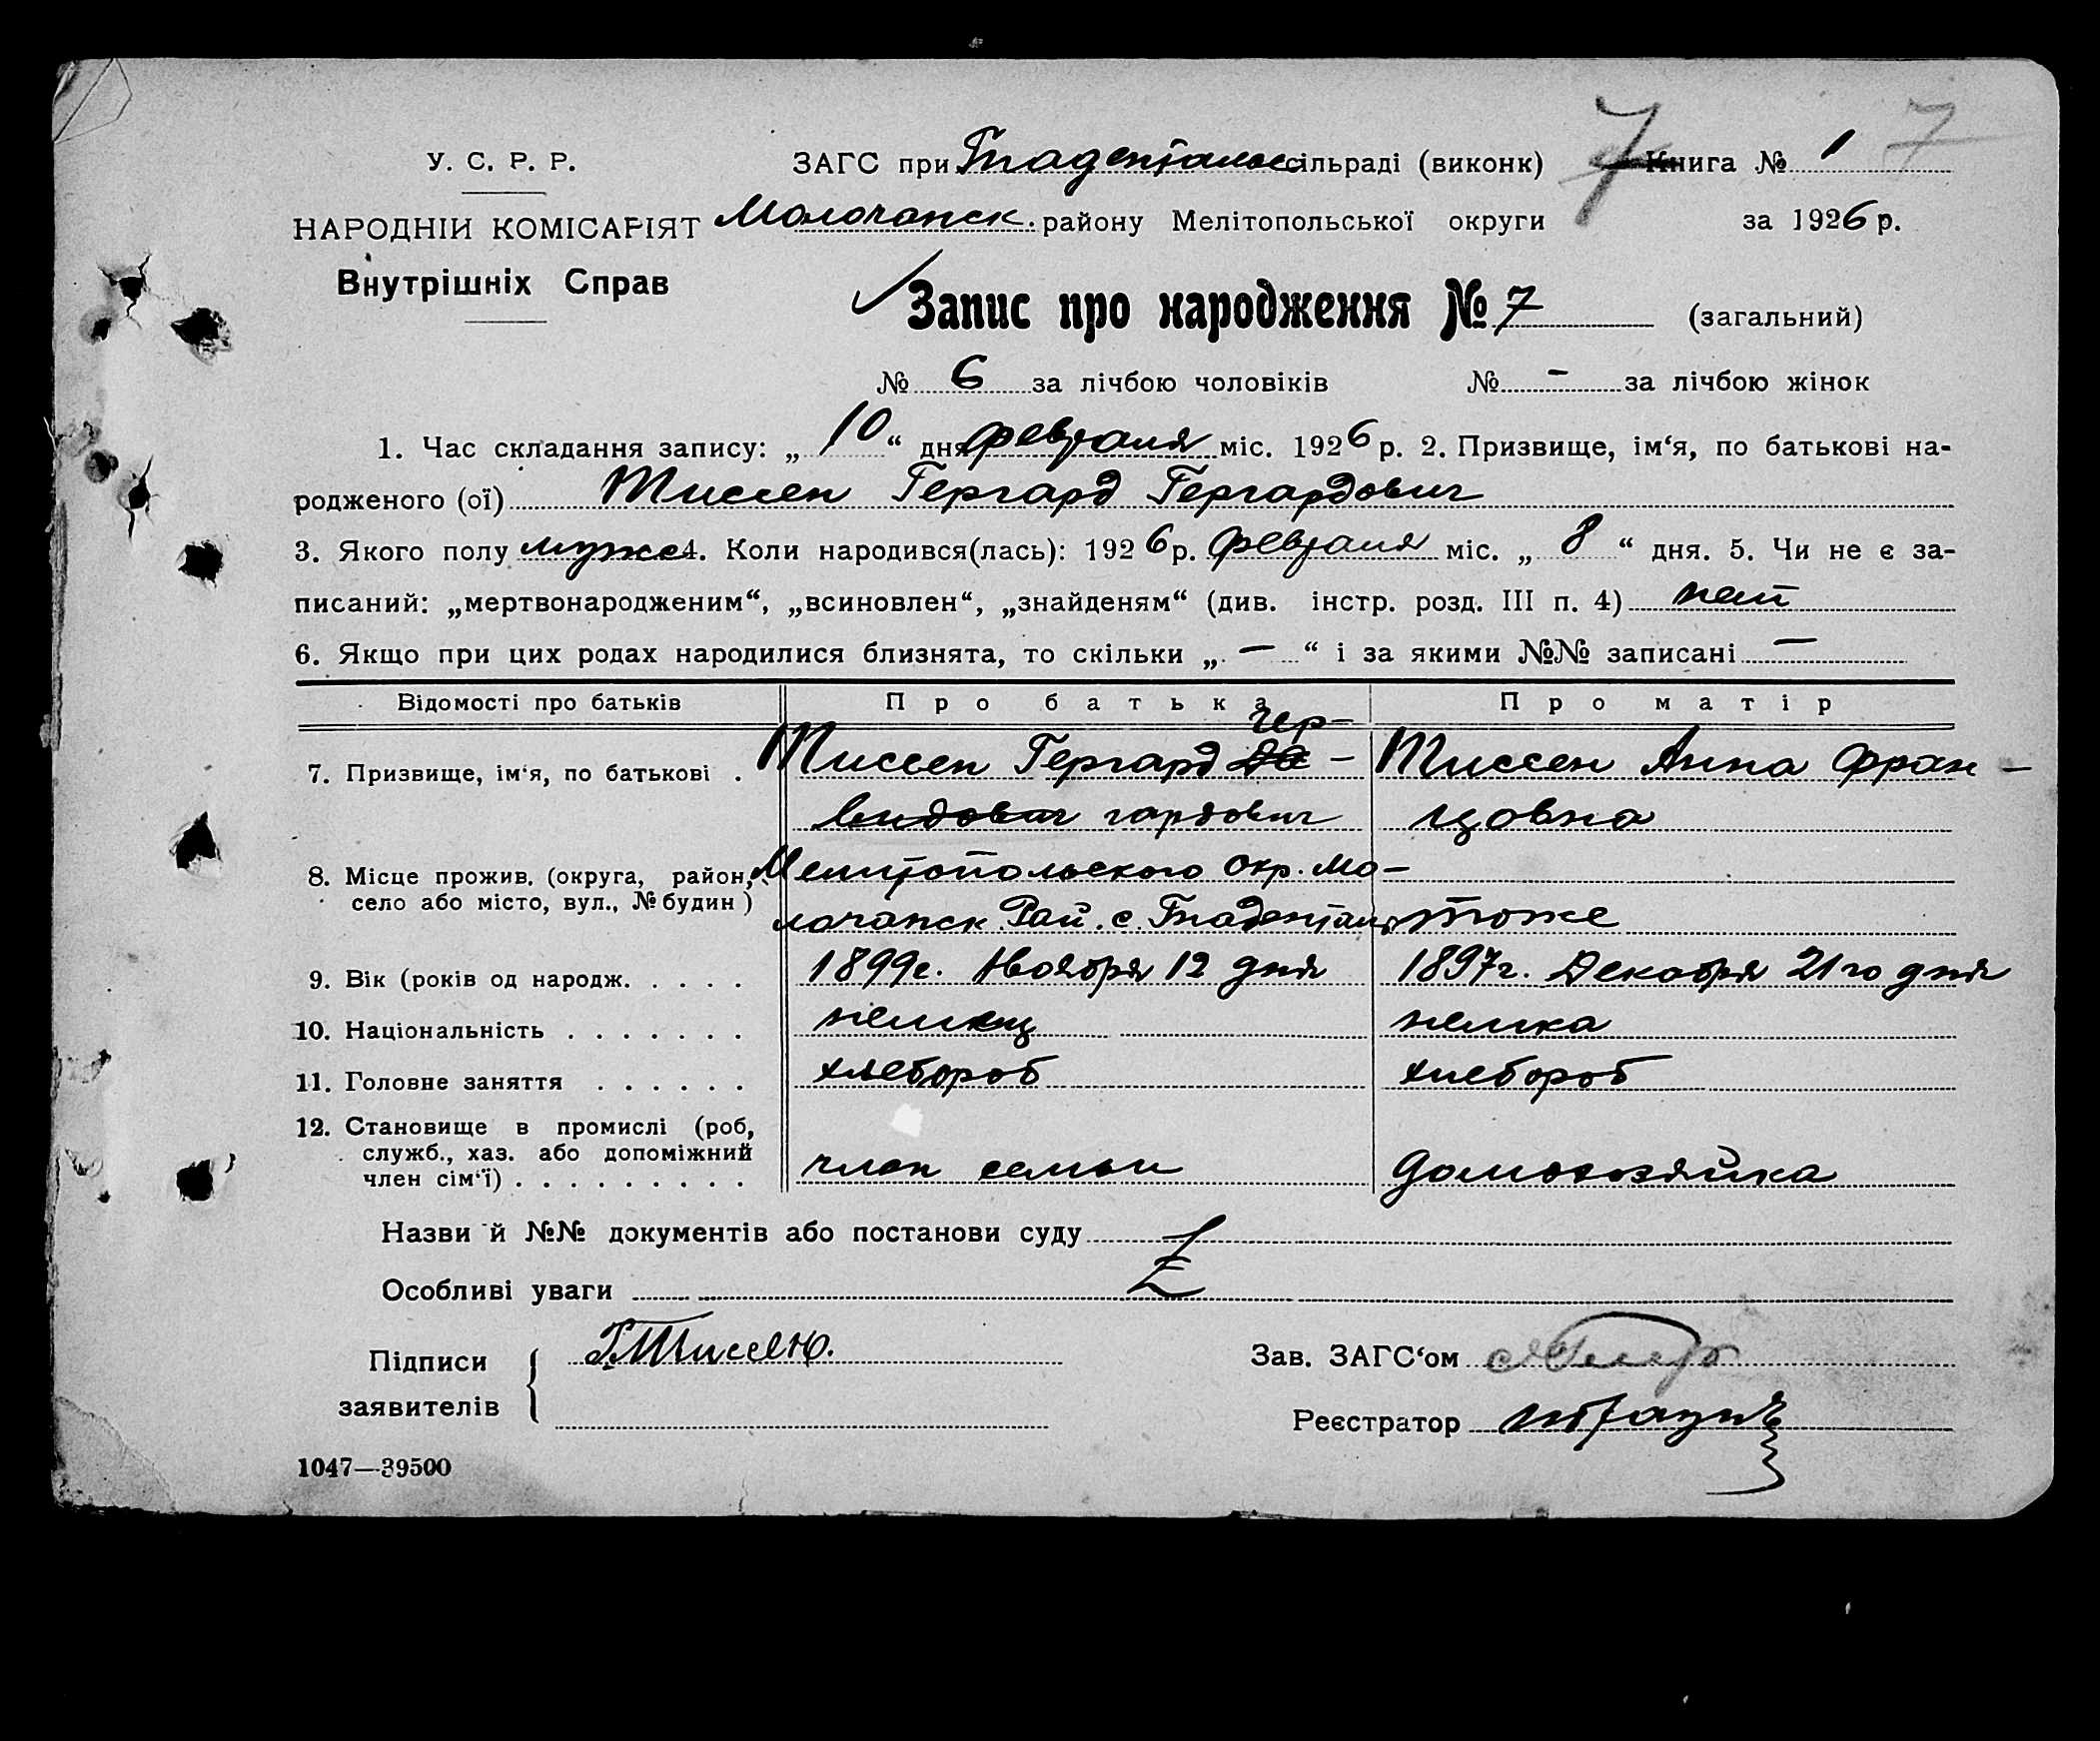 7 7
У. С. Р. Р. ЗАГС при Гнаденталь сільраді (виконк) Книга № 1
НАРОДНІЙ КОМІСАРІЯТ Молочанск. району Мелітопольської округи за 1926 р.
Внутрішніх Справ
Запис про народження № 7 (загальний)
№ 6 за лічбою чоловіків № - за лічбою жінок
1. Час складання запису: „ 10 “ дня февраля міс. 1926 р. 2. Призвище, ім‘я, по батькові на-
родженого (ої) Тиссен Гергард Гергардович
3. Якого полу мужс 4. Коли народився(лась): 1926 р. февраля міс. „ 8 “ дня. 5. Чи не є за-
писаний: „мертвонародженим“, „всиновлен“, „знайденям“ (див. інстр. розд. III п. 4) нет
6. Якщо при цих родах народилися близнята, то скільки „ — “ і за якими №№ записані —
Відомості про батьків Про батька Про матір
7. Призвище, ім‘я, по батькові . Тиссен Гергард Да- Гер- Тиссен Анна Фран-
видович гардович цовна
8. Місце прожив. (округа, район, Мелитопольского Окр. Мо-
село або місто, вул., № будин) лочанск. Рай. с. Гнаденталь тоже
9. Вік (років од народж. . . . . 1899г. Ноября 12 дня 1897г. Декабря 21го дня
10. Національність . . . . . . . немец немка
11. Головне заняття . . . . . . хлебороб хлебороб
12. Становище в промислі (роб,
служб., хаз. або допоміжний
член сім‘ї) . . . . . . . . . член семьи домохозяйка
Назви й №№ документів або постанови суду
Особливі уваги
Підписи Г. Тиссен. Зав. ЗАГС‘ом
заявителів Реєстратор
1047—39500